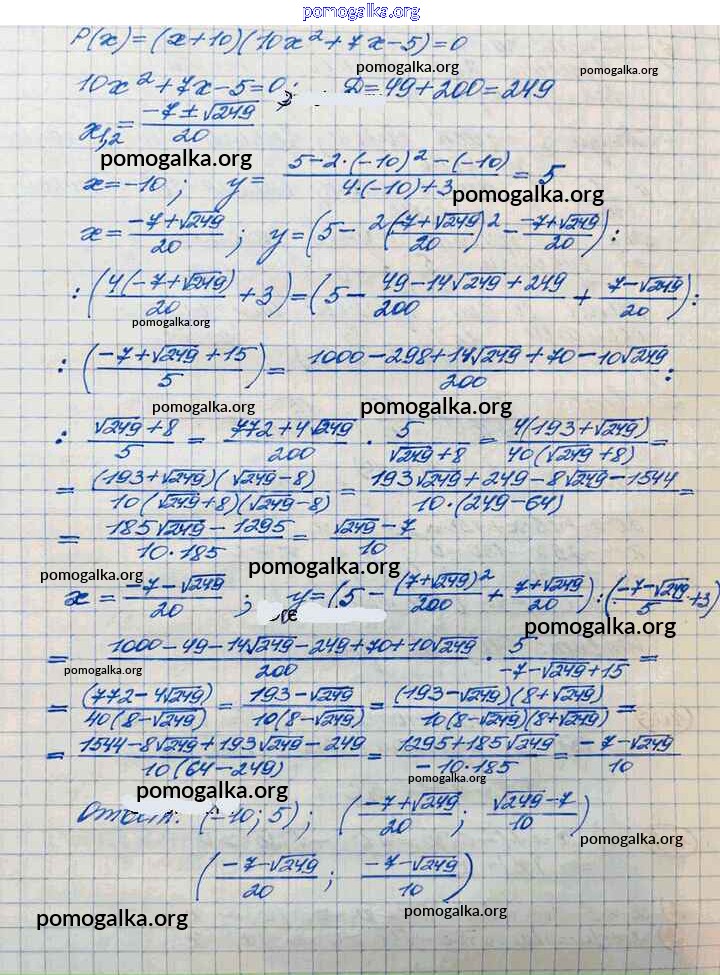 pomogalka.org
P(x) = (x+10)(10x² + 7x − 5) = 0
pomogalka.org
pomogalka.org
10x² + 7x − 5 = 0; D = 49 + 200 = 249
x₁,₂ = (−7 ± √249)/20
pomogalka.org
x = −10; y = (5 − 2·(−10)² − (−10))/(4·(−10) + 3) = 5
pomogalka.org
x = (−7 + √249)/20; y = (5 − 2(−7 + √249)²/20 − (−7 + √249)/20) :
pomogalka.org
: (4(−7 + √249)/20 + 3) = (5 − (49 − 14√249 + 249)/200 + (7 − √249)/20) :
pomogalka.org
: ((−7 + √249 + 15)/5) = (1000 − 298 + 14√249 + 70 − 10√249)/200 :
pomogalka.org
pomogalka.org
: (√249 + 8)/5 = (772 + 4√249)/200 · 5/(√249 + 8) = 4(193 + √249)/(40(√249 + 8)) =
= (193 + √249)(√249 − 8)/(10(√249 + 8)(√249 − 8)) = (193√249 + 249 − 8√249 − 1544)/(10·(249 − 64)) =
= (185√249 − 1295)/(10·185) = (√249 − 7)/10
pomogalka.org
pomogalka.org
x = (−7 − √249)/20; y = (5 − (7 + √249)²/200 + (7 + √249)/20) : ((−7 − √249)/5 + 3)
pomogalka.org
= (1000 − 49 − 14√249 − 249 + 70 + 10√249)/200 · 5/(−7 − √249 + 15) =
pomogalka.org
= (772 − 4√249)/(40(8 − √249)) = (193 − √249)/(10(8 − √249)) = (193 − √249)(8 + √249)/(10(8 − √249)(8 + √249)) =
= (1544 − 8√249 + 193√249 − 249)/(10(64 − 249)) = (1295 + 185√249)/(−10·185) = (−7 − √249)/10
pomogalka.org
pomogalka.org
Ответ: (−10; 5); ((−7 + √249)/20; (√249 − 7)/10)
pomogalka.org
((−7 − √249)/20; (−7 − √249)/10)
pomogalka.org
pomogalka.org